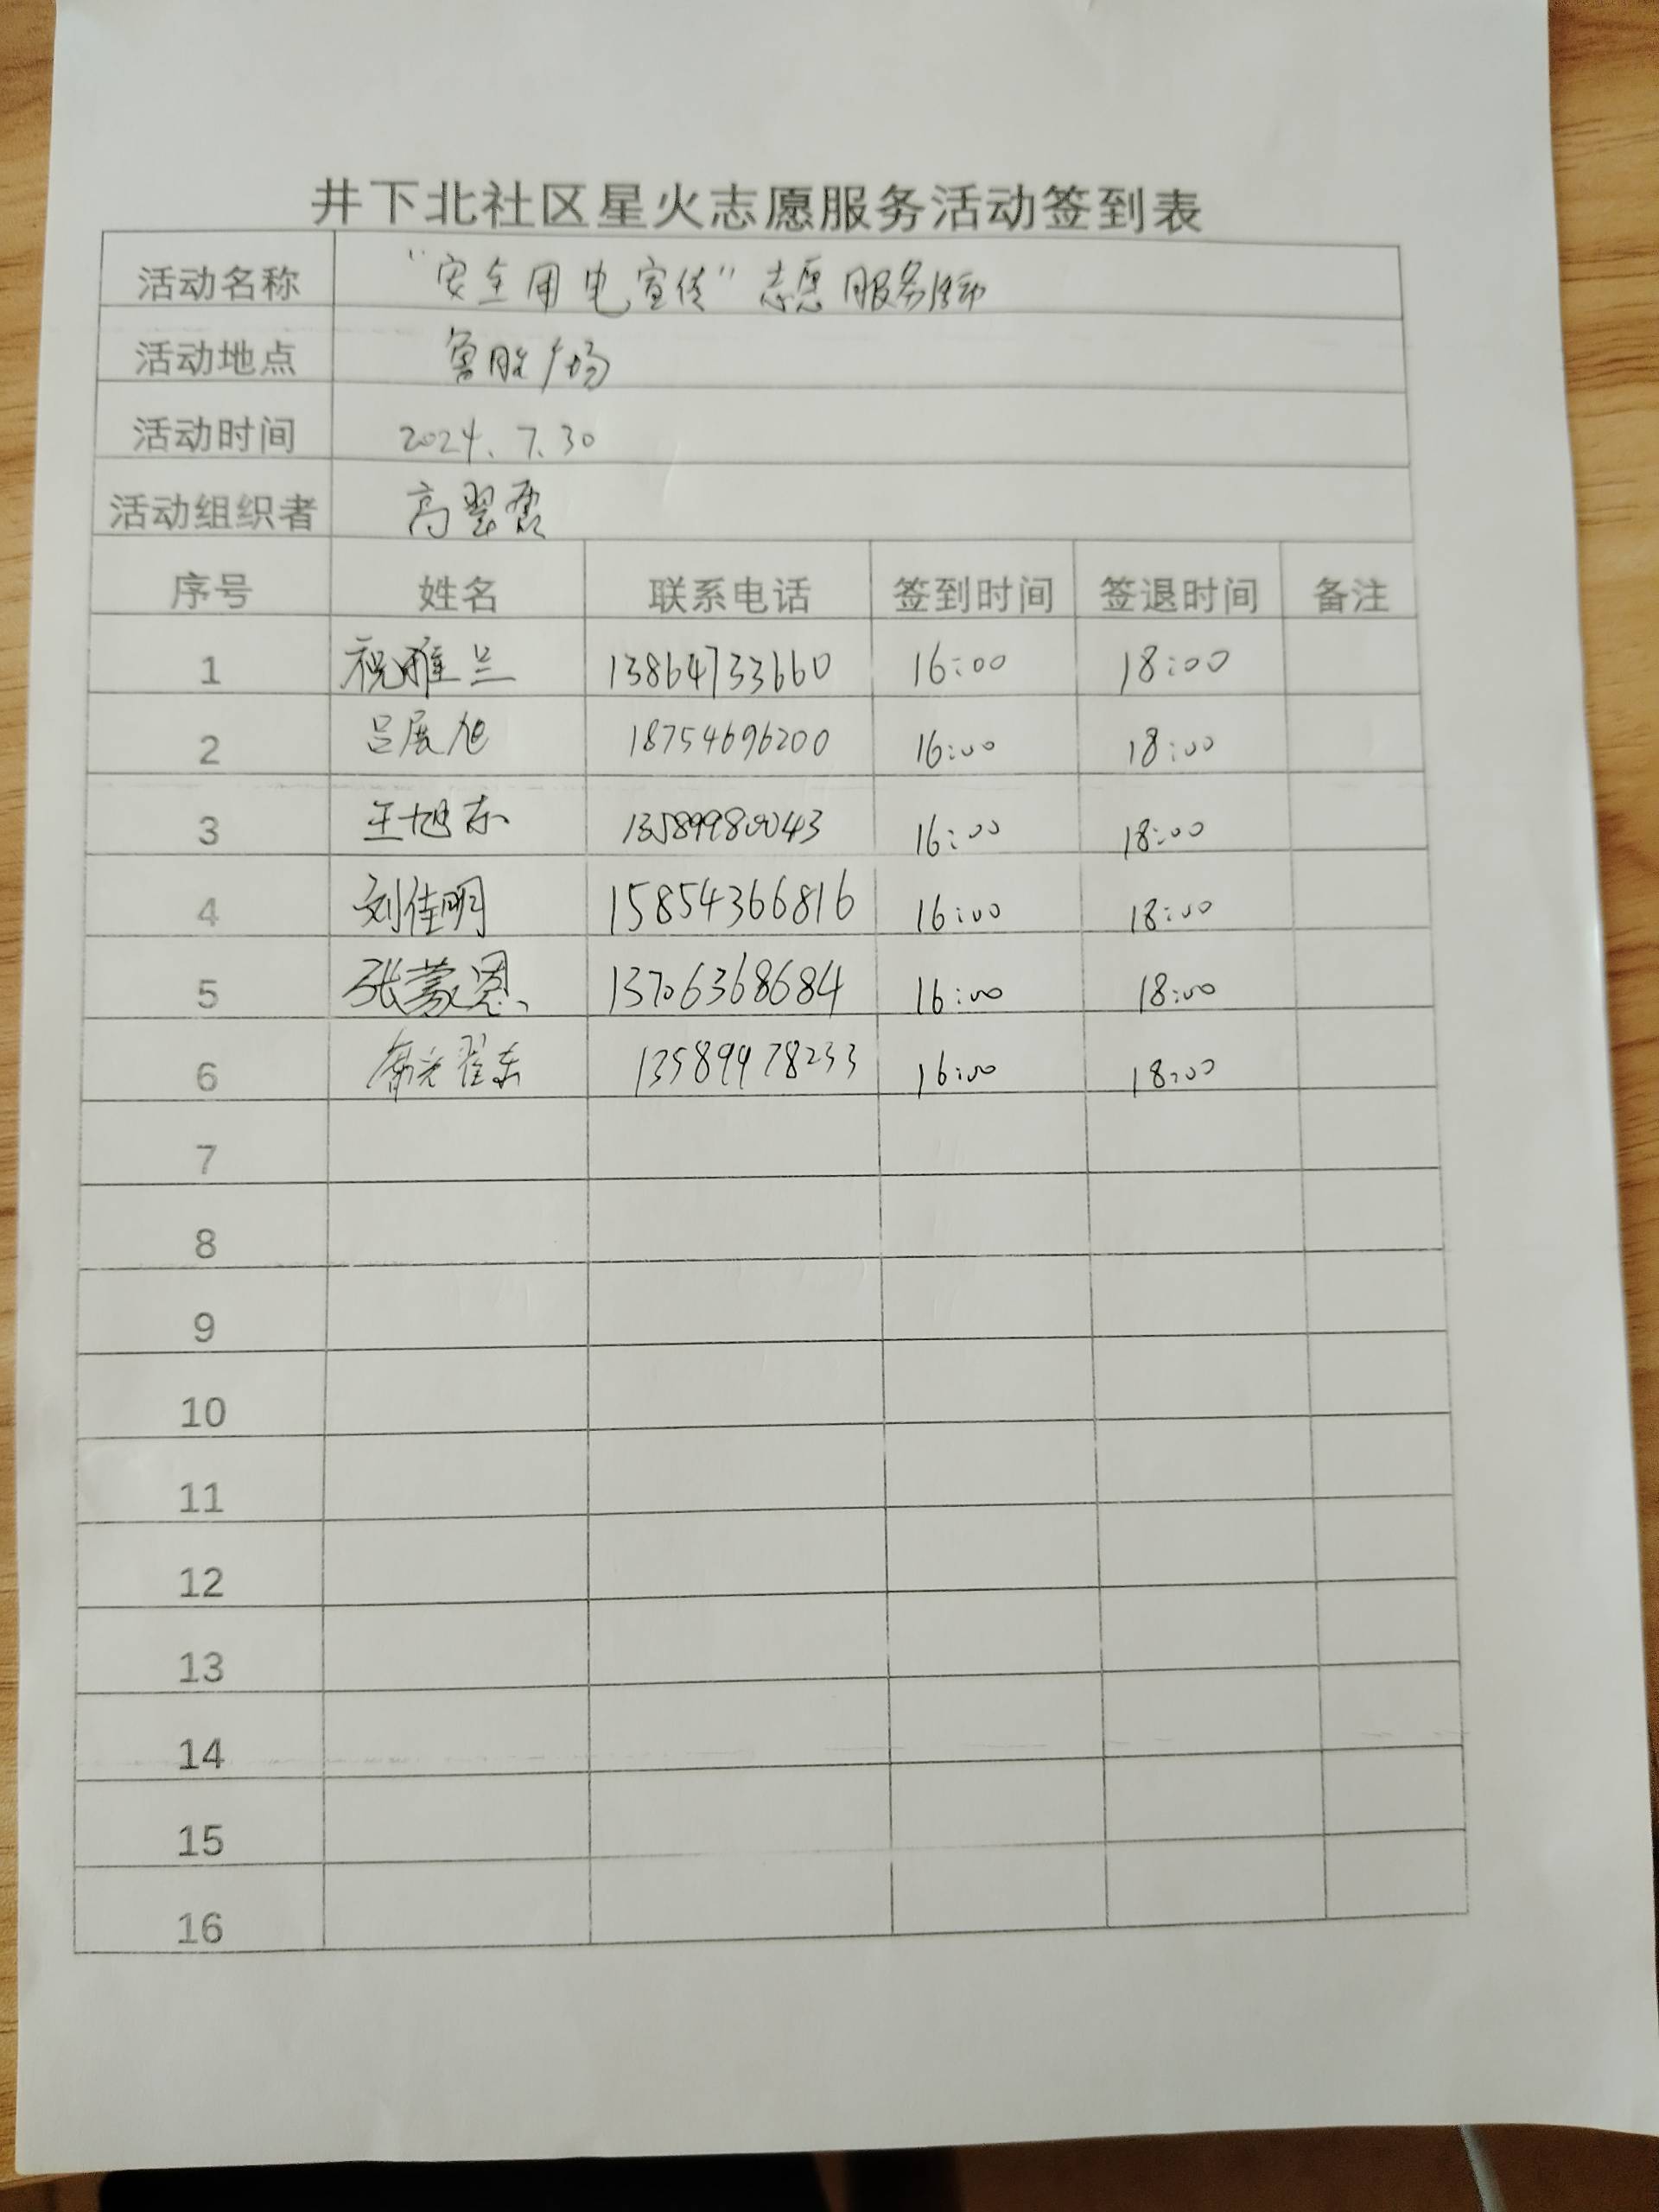 井下北社区星火志愿服务活动签到表
活动名称 “安全用电宣传”志愿服务活动
活动地点 鲁胜广场
活动时间 2024.7.30
活动组织者 高翠霞
序号 姓名 联系电话 签到时间 签退时间 备注
1 祝雅兰 13864733660 16:00 18:00
2 吕展旭 18754696200 16:00 18:00
3 王旭东 13589980043 16:00 18:00
4 刘佳明 15854366816 16:00 18:00
5 张蒙恩 13706368684 16:00 18:00
6 13589978233 16:00 18:00
7
8
9
10
11
12
13
14
15
16